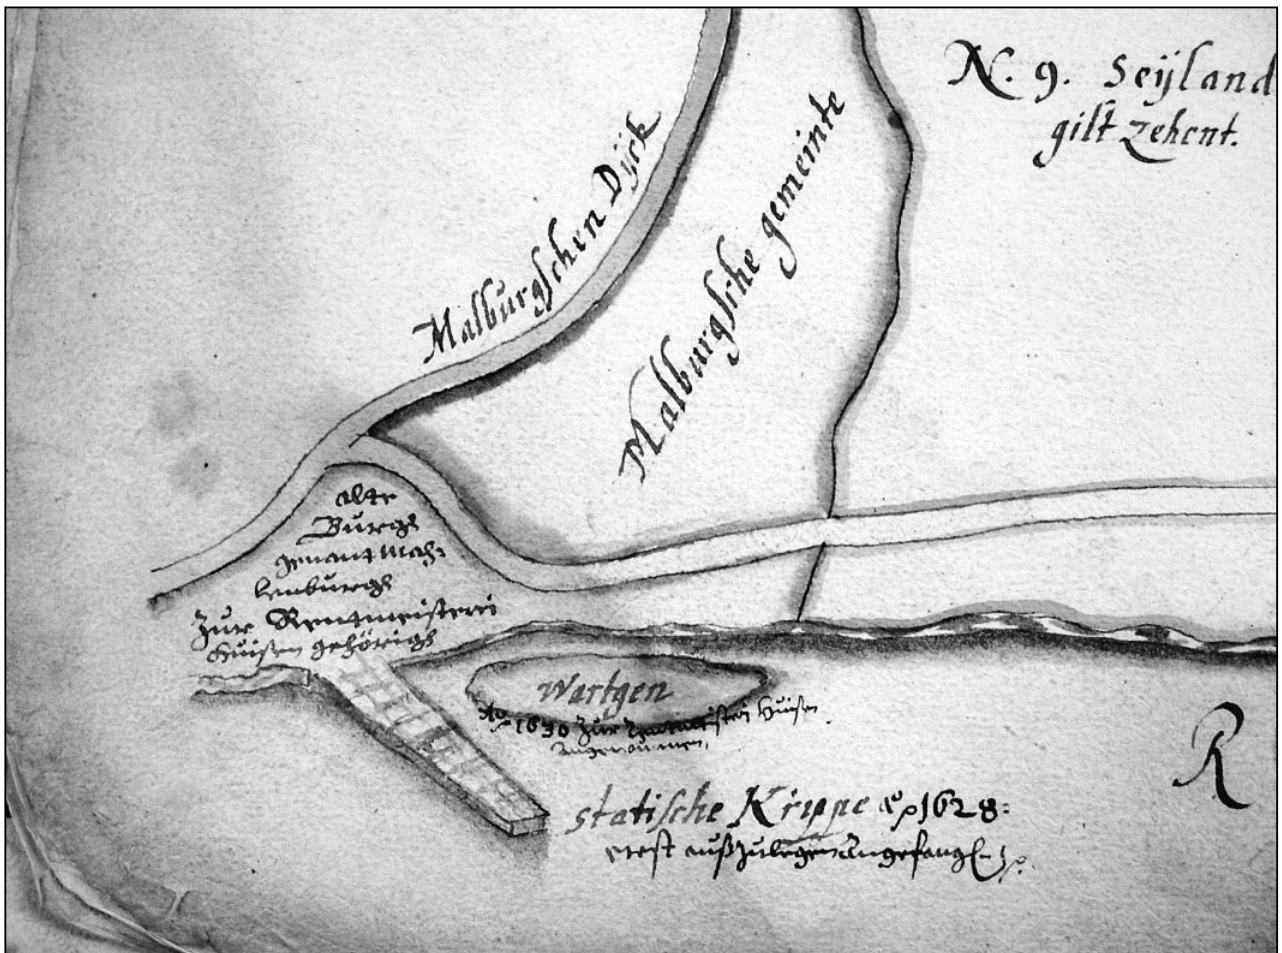 N. 9. Seÿland
gilt zehent.
Malburgschen Dijck
Malburgsche gemeinte
alte
Burgh
genant Mah-
lenburgh
Zur Rentmeisterei
Huißen gehörigh
Wartgen
Aº 1630 Zur Rentmeisterei Huißen
angenommen,
statische Krippe Aº 1628:
erst außzulegen Angefangen
R